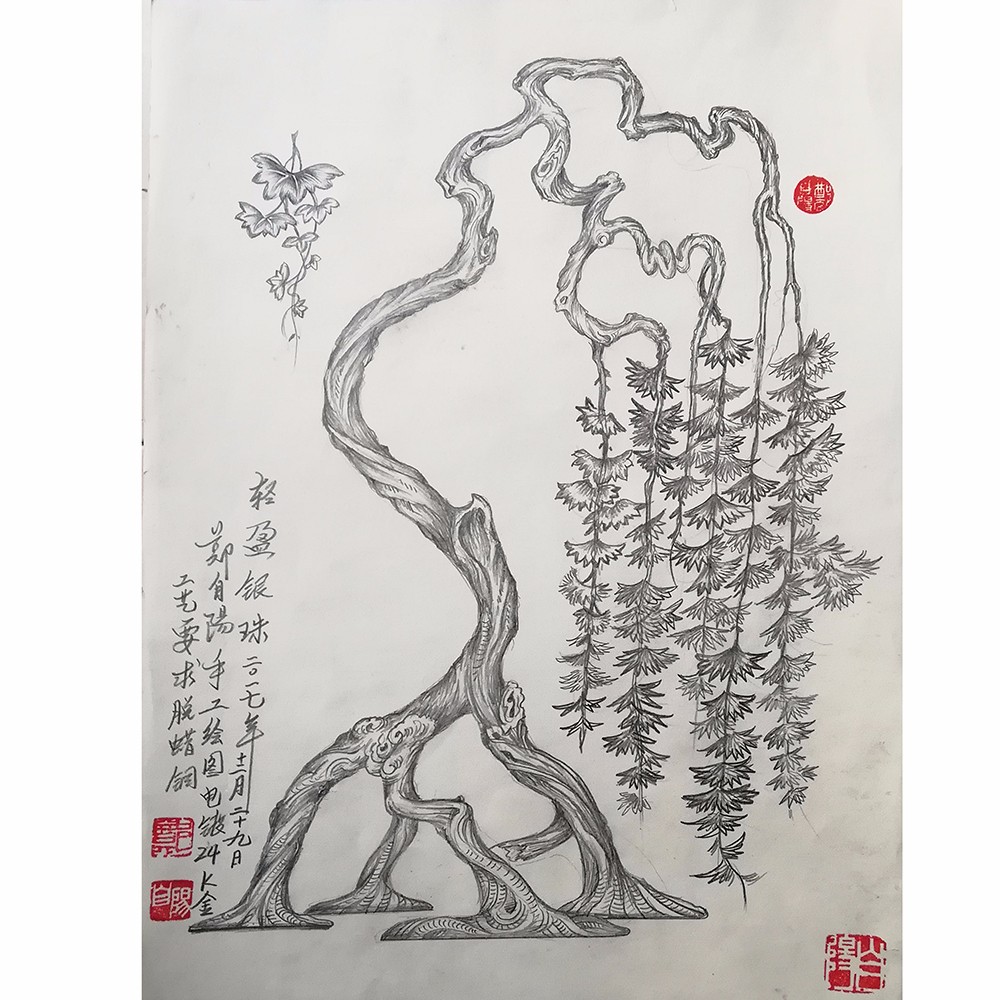 轻盈银珠二〇一七年十二月二十九日
郑自陽手工绘图电镀24K金
工艺要求脱蜡铜
鄭
自陽